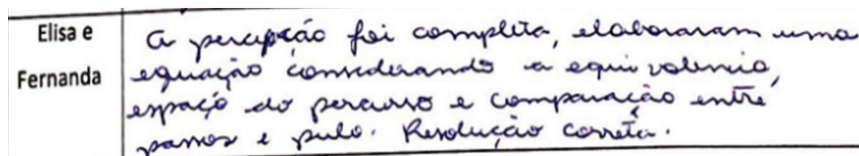 Elisa e
Fernanda
A percepção foi completa, elaboraram uma
equação considerando a equivalencia,
espaço do percurso e comparação entre
passos e pulo. Resolução correta.